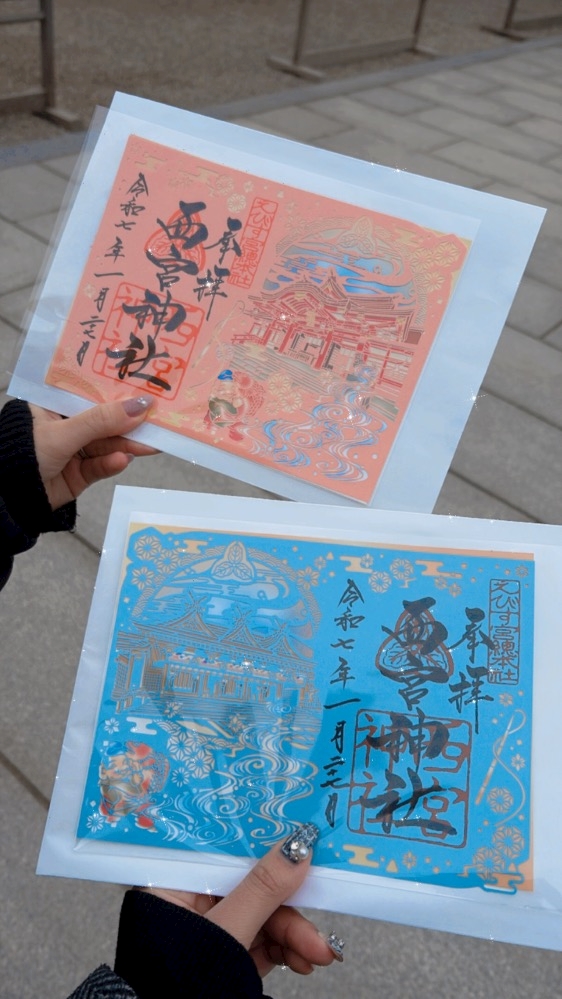 えびす宮總本社
奉拝
西宮神社
西宮
神社
令和七年一月二十七日
えびす宮總本社
奉拝
西宮神社
西宮
神社
令和七年一月二十七日